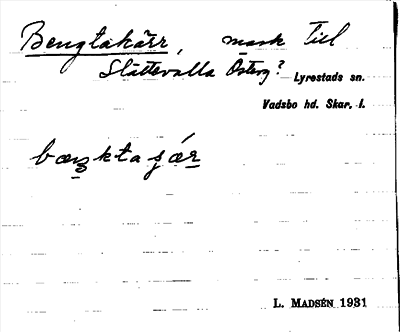 Bengtakärr, mark till
Slättevalla Österg? Lyrestads sn.
Vadsbo hd. Skar. l.
bæŋktaɟær
L. MADSÉN 1931